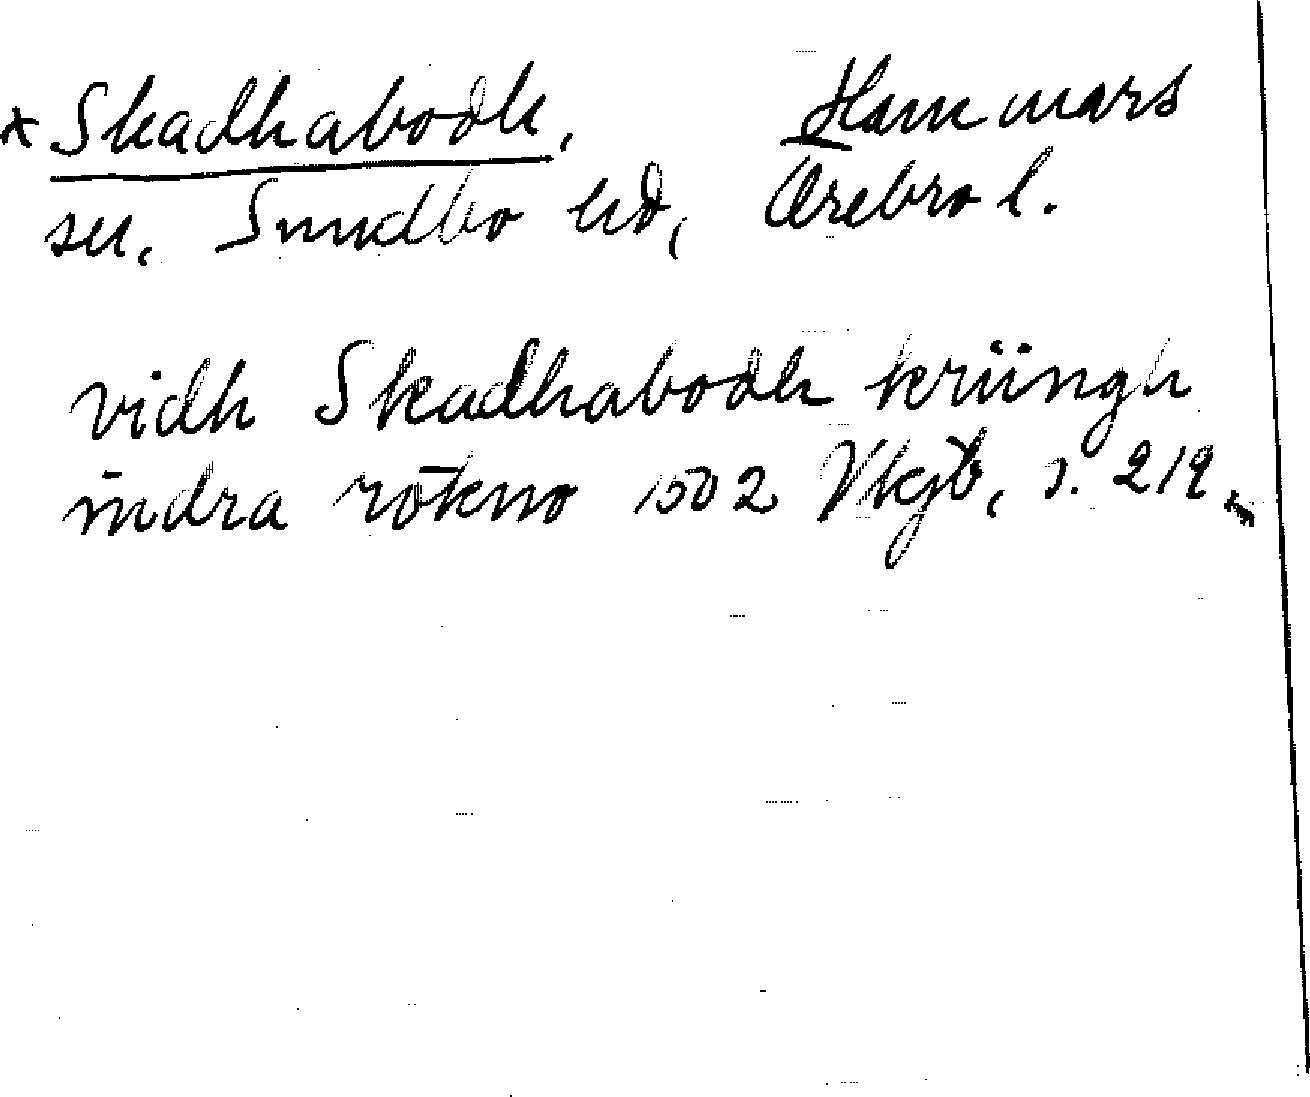 * Skadhabodh, Hammars
sn. Sundbo hd, Örebro l.
vidh Skadhabodh kriingh
indra rökno 1502 Vkjb, s. 219